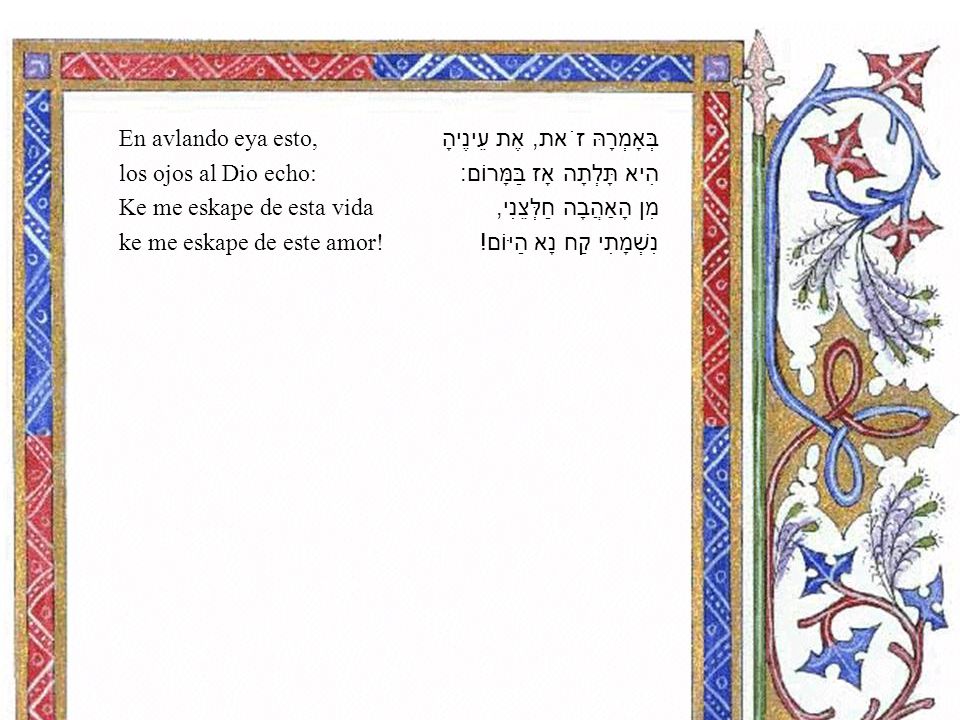 En avlando eya esto,
los ojos al Dio echo:
Ke me eskape de esta vida
ke me eskape de este amor!
בְּאָמְרָהּ זֹאת, אֶת עֵינֶיהָ
הִיא תָּלְתָה אָז בַּמָּרוֹם:
מִן הָאַהֲבָה חַלְּצֵנִי,
נִשְׁמָתִי קַח נָא הַיּוֹם!